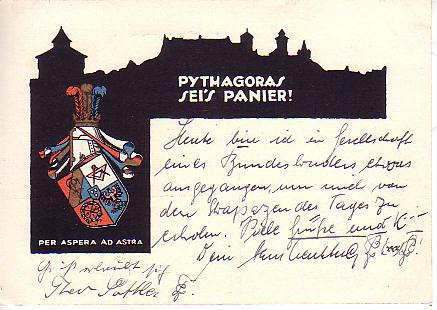 PYTHAGORAS
SEI'S PANIER!
PER ASPERA AD ASTRA
Heute bin ich in Gesellschaft
eines Bundesbruders etwas
ausgegangen, um mich von
den Strapazen des Tages zu
erholen. Viele Grüße und K—
Dein
Gruß